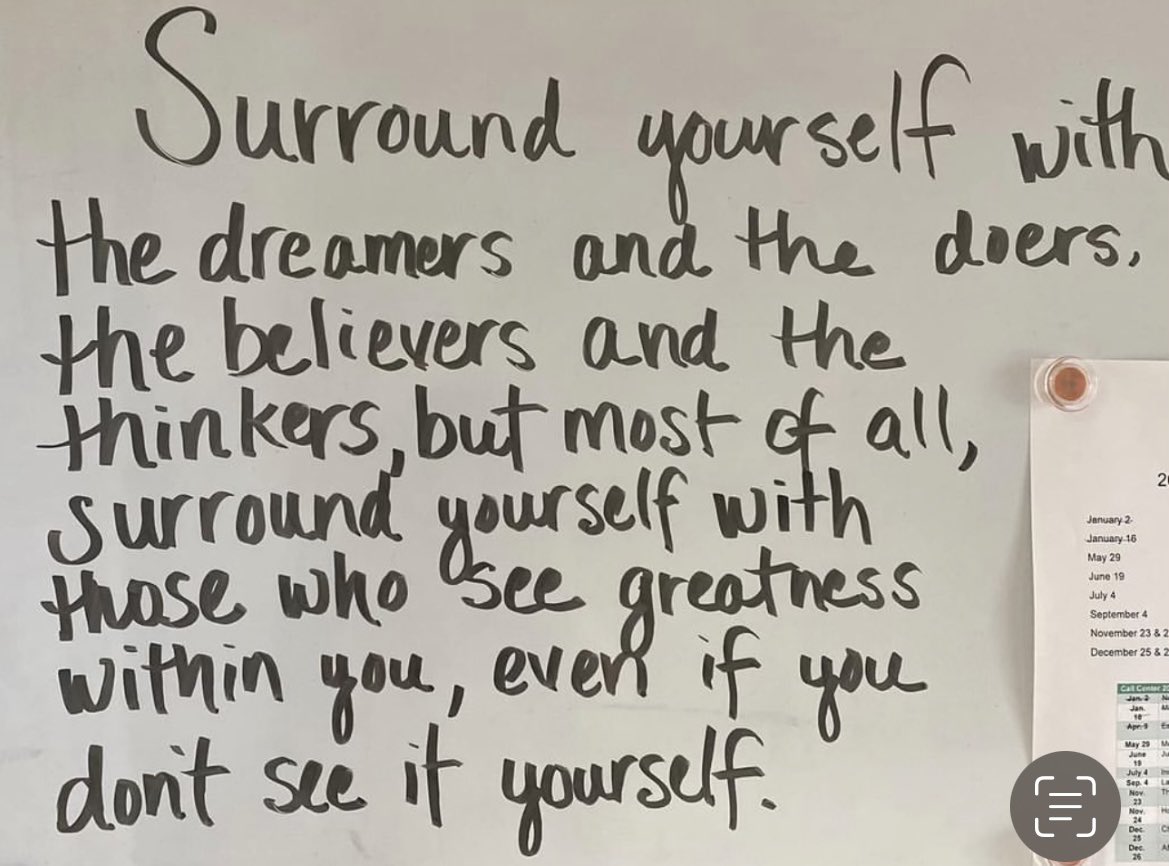 Surround yourself with
the dreamers and the doers,
the believers and the
thinkers, but most of all,
surround yourself with
those who see greatness
within you, even if you
don't see it yourself.
January 2
January 16
May 29
June 19
July 4
September 4
November 23 & 2
December 25 & 2
Call Center 20
Jan. 2
Jan.
16
Apr. 9
May 29
June
19
July 4
Sep. 4
Nov.
23
Nov.
24
Dec.
25
Dec.
26